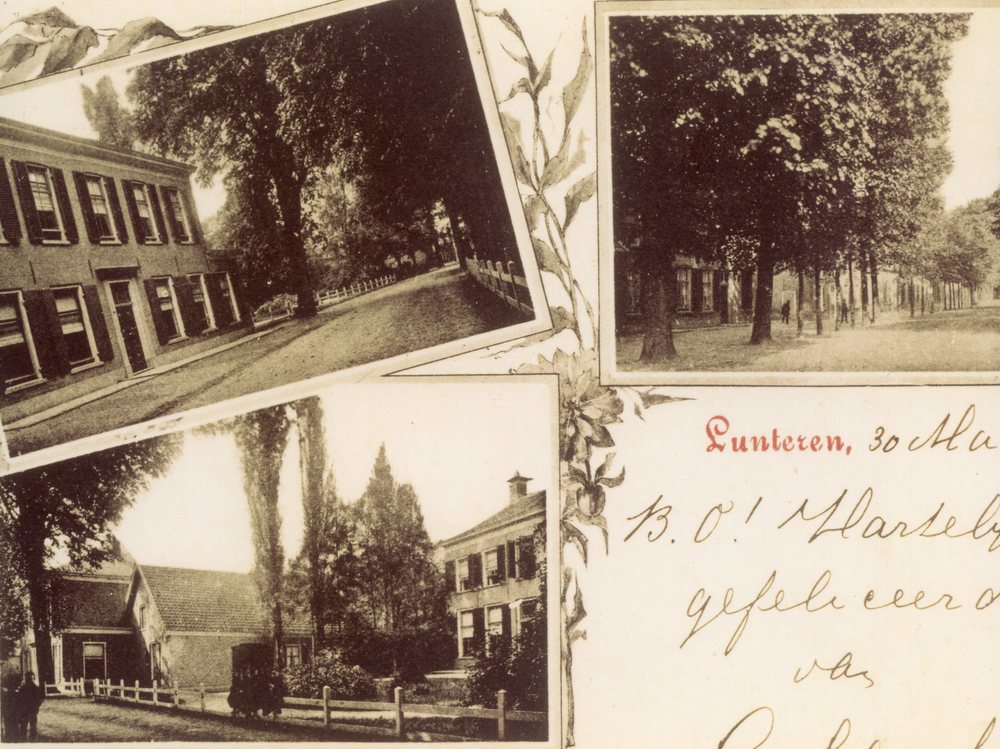 Lunteren, 30 Ma
B. O! Hartely
gefeliceerd
van